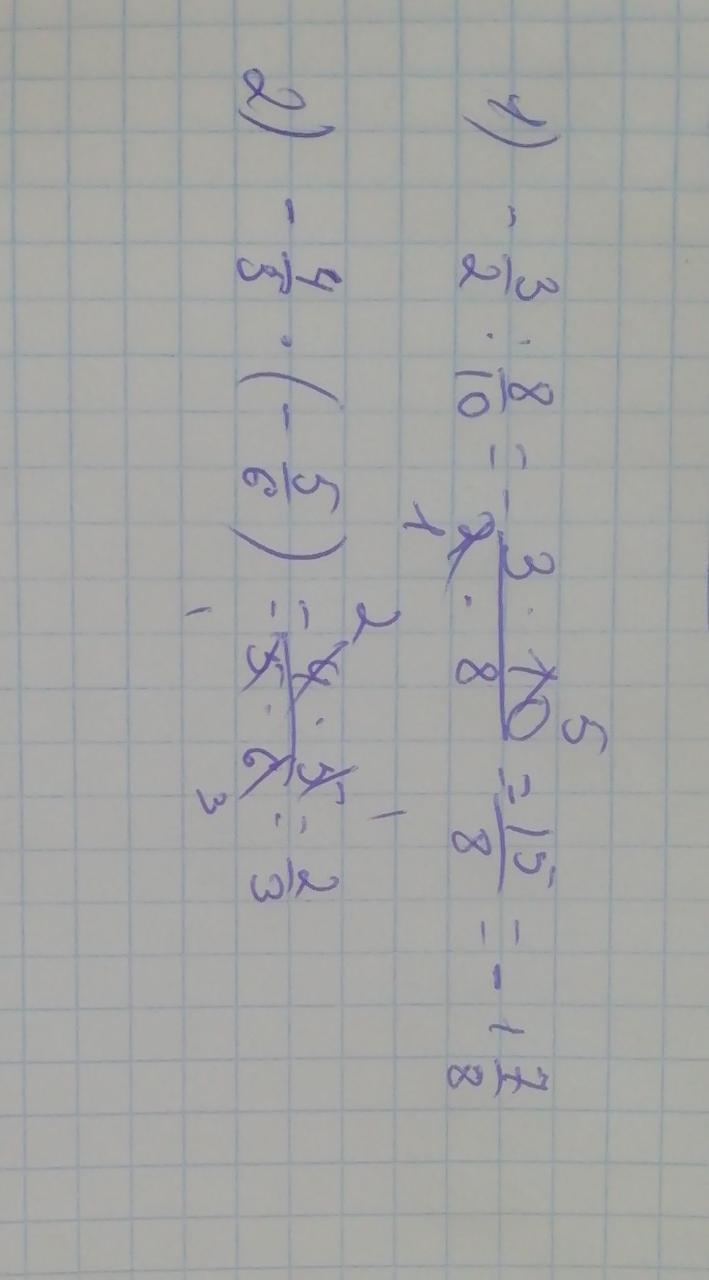 1) - 3/2 : 8/10 = - (3 · 10 5)/(2 1 · 8) = 15/8 = - 1 7/8
2) - 4/5 · (- 5/6) = (4 2 · 5 1)/(5 1 · 6 3) = 2/3